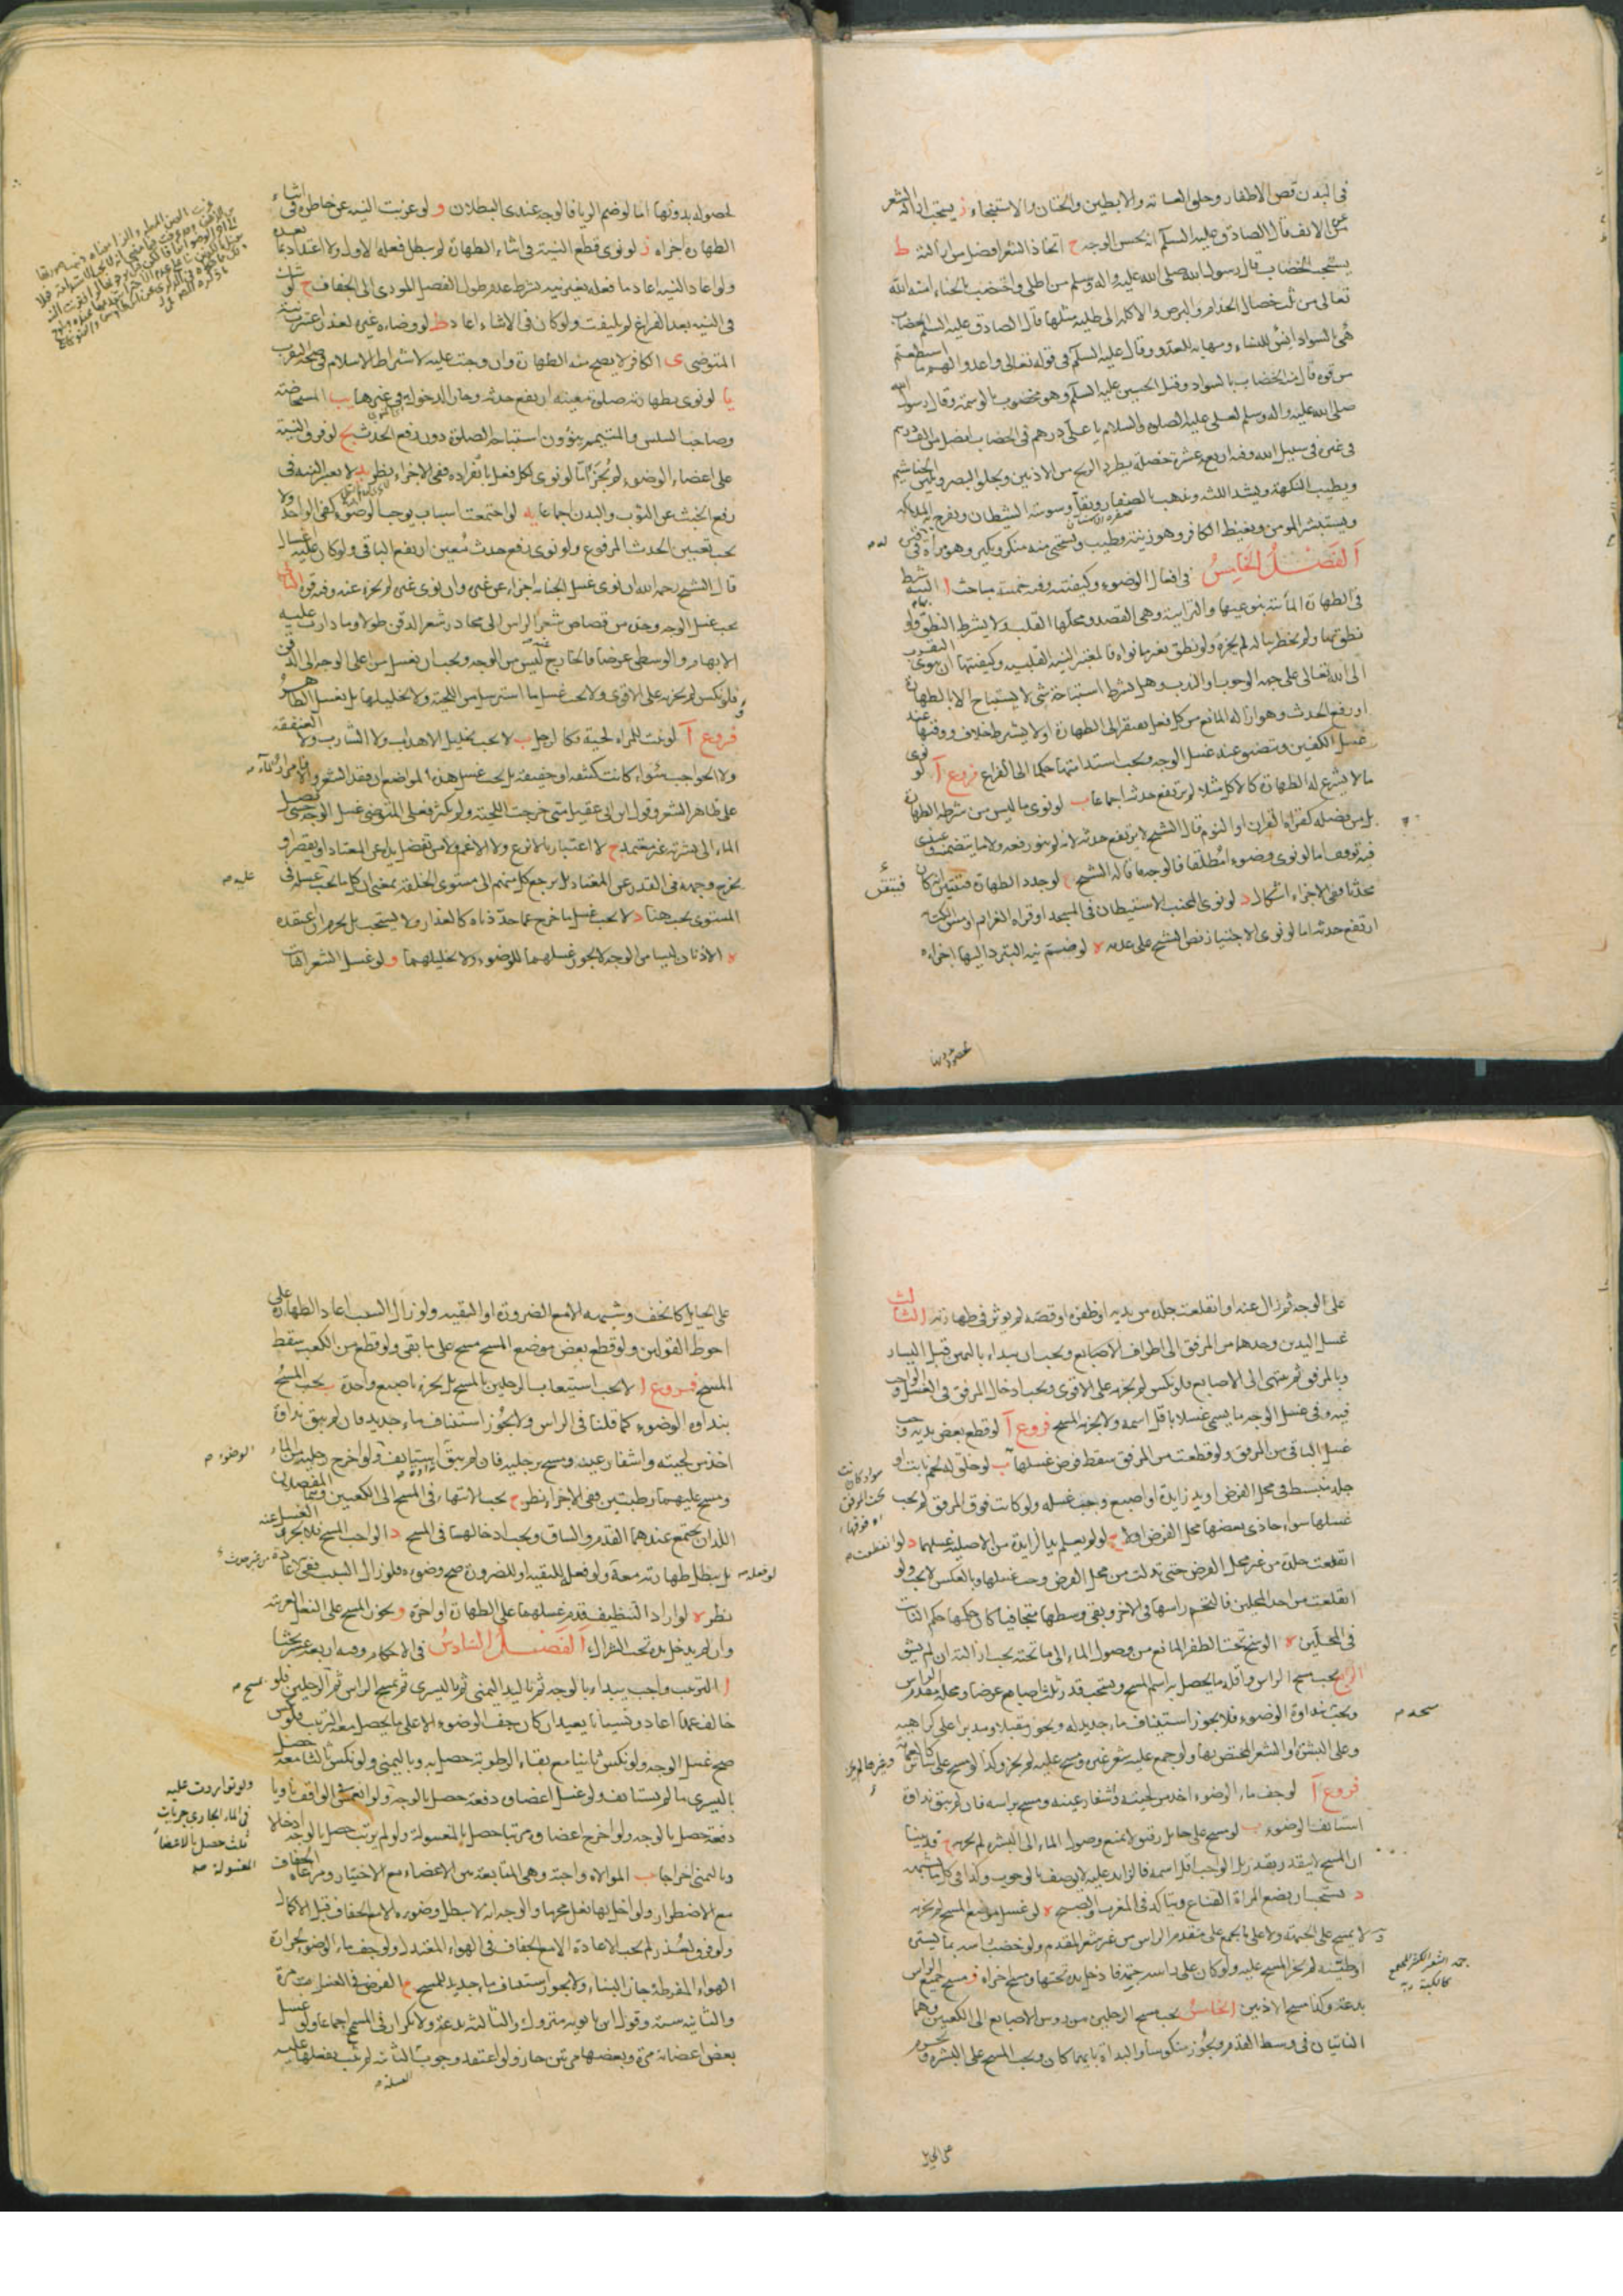 في البدن قص الاظفار وحلق العانة والابطين والختان والاستنجاء ز يستحب ازالة الشعر
عن الانف قال الصادق عليه السلم انه يحسن الوجه ح اتخاذ الشعر افضل من ازالته ط
يستحب الخضاب قال رسول الله صلى الله عليه واله وسلم من اطلى واختضب بالحناء امنه الله
تعالى من ثلث خصال الجذام والبرص والاكلة الى طلية مثلها قال الصادق عليه السلم الخضاب
بالسواد انس للنساء ومهابة للعدو وقال عليه السلم في قوله تعالى واعدوا لهم ما استطعتم
من قوة قال منه الخضاب بالسواد وقتل الحسين عليه السلم وهو مختضب بالوسمة وقال رسول الله
صلى الله عليه واله وسلم لعلي عليه الصلوة والسلام يا علي درهم في الخضاب افضل من الف درهم
في غيره في سبيل الله وفيه اربع عشرة خصلة يطرد الريح من الاذنين ويجلو البصر ويلين الخياشيم
ويطيب النكهة ويشد اللثة ويذهب بالصفار ويقل وسوسة الشيطان ويفرح به الملائكة
ويستبشر المومن ويغيظ الكافر وهو زينة وطيب ويستحيي منه منكر ونكير وهو براة في قبره
الفصل الخامس في افعال الوضوء وكيفيته وفيه خمسة مباحث ا النية شرط
في الطهارة المائية بنوعيها والترابية وهي القصد ومحلها القلب ولا يشترط النطق بها ولو
نطق بها ولم يخطر بباله لم يجزه ولو نطق بغير ما نواه فالمعتبر النية القلبية وكيفيتها ان ينوي التقرب
الى الله تعالى على جهة الوجوب او الندب وهل يشترط استباحة شي لا يستباح الا بالطهارة
او رفع الحدث وهو ازالة المانع من كل فعل يفتقر الى الطهارة او لا يشترط خلاف ووقتها عند
غسل الكفين ويتضيق عند غسل الوجه ويجب استدامتها حكما الى الفراغ فروع آ لو نوى
ما لا يشرع له الطهارة كالاكل مثلا لم يرتفع حدثه اجماعا ب لو نوى ما ليس من شرطه الطهارة
بل من فضله كقراة القران او النوم قال الشيخ لا يرتفع حدثه لانه لم ينو رفعه ولا ما يتضمنه وعندي
فيه توقف اما لو نوى وضوء مطلقا فالوجه ما قاله الشيخ ج لو جدد الطهارة فتيقن انه كان
محدثا ففي الاجزاء اشكال د لو نوى المجنب الاستيطان في المسجد او قراة العزايم او مس الكتابة
ارتفع حدثه اما لو نوى الاجتياز نص الشيخ على عدمه ه لو ضم نية التبرد اليها اجزاه
لحصوله بدونها
لحصوله بدونها اما لو ضم الريا فالوجه عندي البطلان و لو عزبت النية عن خاطره في اثناء
الطهارة اجزاه ز لو نوى قطع النية في اثناء الطهارة لم يبطل فعله الاول ولا اعتداد بما بعده
ولو اعاد النية اعاد ما فعله بغير نية بشرط عدم طول الفصل المودي الى الجفاف ح لو شك
في النية بعد الفراغ لم يلتفت ولو كان في الاثناء اعاد ط لو وضاه غيره لعذر اعتبرت نية
المتوضي ى الكافر لا يصح منه الطهارة وان وجبت عليه لاشتراط الاسلام في صحة التقرب
يا لو نوى بطهارته صلوة معينة ارتفع حدثه وجاز الدخول به في غيرها يب المستحاضة
وصاحبا السلس والمتيمم ينوون استباحة الصلوة دون رفع الحدث يج لو فرق النية
على اعضاء الوضوء لم يجز امّا لو نوى لكل فعل بانفراده ففي الاجزاء نظر يد لا يعتبر النية في
رفع الخبث عن الثوب والبدن اجماعا يه لو اجتمعت اسباب يوجب الوضوء كفى الواحد ولا
يجب تعيين الحدث المرفوع ولو نوى رفع حدث معين ارتفع الباقي ولو كان عليه اغسال
قال الشيخ رحمه الله ان نوى غسل الجنابة اجزاء عن غيره وان نوى غيره لم يجزه عنه وفيه قوة الثاني
يجب غسل الوجه وحده من قصاص شعر الراس الى محادر شعر الذقن طولا وما دارت عليه
الابهام والوسطى عرضا فالخارج ليس من الوجه ويجب ان يغسل من اعلى الوجه الى الذقن
فلو نكس لم يجزه على الاقوى ولا يجب غسل ما استرسل من اللحية ولا تخليلها بل يغسل الظاهر
فروع آ لو نبت للمراة لحية فكالرجل ب لا يجب تخليل الاهداب ولا الشارب ولا العنفقة
ولا الحواجب سواء كانت كثيفة او خفيفة بل يجب غسل هذه المواضع ان فقد الشعر والا فامرار الماء
على ظاهر الشعر وقول ابن ابي عقيل متى خرجت اللحية ولم يكثر فعلى المتوضي غسل الوجه حتى يصل
الماء الى بشرته غير معتمد ج لا اعتبار بالانزع ولا الاغم ولا من تفضل يده عن المعتاد او يقصر او
يخرج وجهه في القدر عن المعتاد بل يرجع كل منهم الى مستوى الخلقة بمعنى ان كل ما يجب غسله في
المستوى يجب هنا د لا يجب غسل ما خرج عما حددناه كالعذار ولا يستحب بل يحرم ان اعتقده
ه الاذنان ليسا من الوجه لا يجوز غسلهما للوضوء ولا تخليلهما و لو غسل الشعر النابت
على الوجه ثم زال عنه او انقلعت جلدة من يديه او ظفره او قصه لم يوثر في طهارته الثالث
غسل اليدين وحدها من المرفق الى اطراف الاصابع ويجب ان يبداء باليمين قبل اليسار
وبالمرفق ثم ينتهي الى الاصابع فلو نكس لم يجزه على الاقوى ويجب ادخال المرفق في الغسل والواجب
فيه وفي غسل الوجه ما يسمى غسلا باقل اسمه ولا يجزيه المسح فروع آ لو قطع بعض يديه وجب
غسل الباقي من المرفق ولو قطعت من المرفق سقط فرض غسلها ب لو خلق له لحم نابت او
جلد منبسط في محل الفرض او يد زايدة او اصبع وجب غسله ولو كانت فوق المرفق لم يجب
غسلها سواء حاذى بعضها محل الفرض او طال ج لو لم يعلم يد الزايدة من الاصلية غسلهما د لو
انقلعت جلدة من غير محل الفرض حتى تدلت من محل الفرض وجب غسلها وبالعكس لا يجب ولو
انقلعت من احد المحلين فالتحم راسها في الاخر وبقي وسطها متجافيا كان حكمها حكم النابت
في المحلين ه الوسخ تحت الظفر المانع من وصول الماء الى ما تحته يجب ازالته ان لم يشق
الرابع يجب مسح الراس واقله ما يحصل به اسم المسح ويستحب قدر ثلث اصابع عرضا ومحله مقدم الراس
ويجب بنداوة الوضوء فلا يجوز استيناف ماء جديد له ويجوز مقبلا ومدبرا على كراهية
وعلى البشرة او الشعر المختص بها ولو جمع عليه شعر غيره ومسح عليه لم يجز وكذا لو مسح على حايل كالعمامة
فروع آ لو جف ماء الوضوء اخذ من لحيته واشفار عينيه ومسح براسه فان لم يبق نداوة
استانف الوضوء ب لو مسح على حايل رقيق لا يمنع وصول الماء الى البشرة لم يجزه ج قد بينا
ان المسح لا يتقدر بقدر بل الواجب اقل اسمه فالزايد عليه لا يوصف بالوجوب وكذا في كل ما يشبهه
د يستحب ان يضع المراة القناع ويتاكد في المغرب والصبح ه لو غسل موضع المسح لم يجزه
و لا يمسح على الجمة ولا على ما يجمع على مقدم الراس من غير شعر المقدم ولو خضب راسه بما يستره
او طينه لم يجز المسح عليه ولو كان على راسه جمة فادخل يده تحتها ومسح اجزاه ز مسح جميع الراس
بدعة وكذا مسح الاذنين الخامس يجب مسح الرجلين من روس الاصابع الى الكعبين وهما
الناتيان في وسط القدم ويجوز منكوسا والبداة بايهما كان ويجب المسح على البشرة ويحرم
على الحايل
على الحايل كالخف وشبهه الا مع الضرورة او التقية ولو زال السبب اعاد الطهارة على
احوط القولين ولو قطع بعض موضع المسح مسح على ما بقي ولو قطع من الكعب سقط
المسح فروع ا لا يجب استيعاب الرجلين بالمسح بل يجزء باصبع واحدة ب يجب المسح
بنداوة الوضوء كما قلنا في الراس ولا يجوز استيناف ماء جديد فان لم يبق نداوة
اخذ من لحيته واشفار عينيه ومسح برجليه فان لم يبق استانف ولو اخرج رجليه من الماء
ومسح عليهما رطبتين ففي الاجزاء نظر ج يجب الانتهاء في المسح الى الكعبين وهما المفصلان
اللذان يجتمع عندهما القدم والساق ويجب ادخالهما في المسح د الواجب المسح فلا يجزى الغسل عنه
بل يبطل طهارته معه ولو فعله للتقية او للضرورة صح وضوءه فلو زال السبب ففي الاعادة
نظر ه لو اراد التنظيف قدم غسلهما على الطهارة او اخره و يجوز المسح على النعل العربية
وان لم يدخل يده تحت الشراك الفصل السادس في الاحكام وفيه اربعة عشر بحثا
ا الترتيب واجب يبداء بالوجه ثم باليد اليمنى ثم باليسرى ثم يمسح الراس ثم الرجلين فلو
خالف عمدا اعاد ونسيانا يعيد ان كان جف الوضوء والا على ما يحصل معه الترتيب ولو نكس
صح غسل الوجه ولو نكس ثانيا مع بقاء الرطوبة حصل به وباليمنى ولو نكس ثالثا معه حصل
باليسرى ما لم يستانف ولو غسل اعضاوه دفعة حصل بالوجه ولو انغمس في الواقف ناويا
دفعة حصل بالوجه ولو اخرج اعضاوه مرتبا حصل بالمغسولة ولو لم يرتب حصل بالوجه ادخالا
وباليمنى اخراجا ب الموالاة واجبة وهي المتابعة بين الاعضاء مع الاختيار ومراعاة الجفاف
مع الاضطرار ولو اخل بها فعل محرما والوجه انه لا يبطل وضوءه الا مع الجفاف قبل الاكمال
ولو فرق لعذر لم يجب الاعادة الا مع الجفاف في الهواء المعتدل ولو جف ماء الوضوء لحرارة
الهواء المفرطة جاز البناء ولا يجوز استيناف ماء جديد للمسح ج الفرض في الغسل مرة
والثانية سنة وقول ابن بابويه متروك والثالثة بدعة ولا تكرار في المسح اجماعا ولو غسل
بعض اعضائه مرة وبعضها مرتين جاز ولو اعتقد وجوب الثانية لم يثب بفعلها عليه
ولو توارت عليه
في الماء الجاري جريات
ثلث حصل بالاعضاء
المغسولة صح